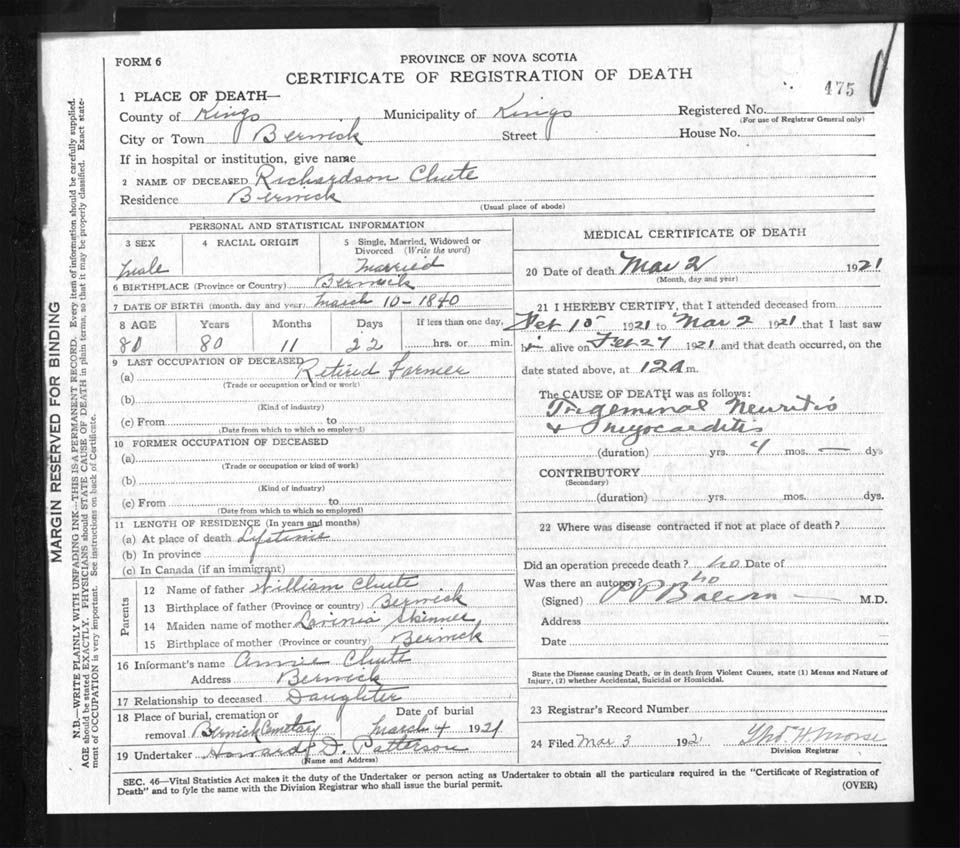 FORM 6
PROVINCE OF NOVA SCOTIA
CERTIFICATE OF REGISTRATION OF DEATH
475
1 PLACE OF DEATH—
County of Kings Municipality of Kings Registered No.
(For use of Registrar General only)
City or Town Berwick Street House No.
If in hospital or institution, give name
2 NAME OF DECEASED Richardson Chute
Residence Berwick
(Usual place of abode)
PERSONAL AND STATISTICAL INFORMATION
3 SEX 4 RACIAL ORIGIN 5 Single, Married, Widowed or Divorced (Write the word)
Male Married
6 BIRTHPLACE (Province or Country) Berwick
7 DATE OF BIRTH (month, day and year) March 10-1840
8 AGE Years Months Days If less than one day,
80 80 11 22 hrs. or min.
9 LAST OCCUPATION OF DECEASED Retired Farmer
(a)
(Trade or occupation or kind or work)
(b)
(Kind of industry)
(c) From to
(Date from which to which so employed)
10 FORMER OCCUPATION OF DECEASED
(a)
(Trade or occupation or kind of work)
(b)
(Kind of industry)
(c) From to
(Date from which to which so employed)
11 LENGTH OF RESIDENCE (In years and months)
(a) At place of death Lifetime
(b) In province
(c) In Canada (if an immigrant)
Parents
12 Name of father William Chute
13 Birthplace of father (Province or country) Berwick
14 Maiden name of mother Lavinia Skinner
15 Birthplace of mother (Province or country) Berwick
16 Informant's name Annie Chute
Address Berwick
17 Relationship to deceased Daughter
18 Place of burial, cremation or removal Berwick Cemetary Date of burial March 4 1921
19 Undertaker Howard D. Patterson
(Name and Address)
MEDICAL CERTIFICATE OF DEATH
20 Date of death Mar 2 1921
(Month, day and year)
21 I HEREBY CERTIFY, that I attended deceased from
Feb 10 1921 to Mar 2 1921 that I last saw
him alive on Feb 27 1921 and that death occurred, on the
date stated above, at 12 a m.
The CAUSE OF DEATH was as follows:
Trigeminal Neuritis
& Myocarditis
(duration) yrs. 4 mos. — dys
CONTRIBUTORY
(Secondary)
(duration) yrs. mos. dys.
22 Where was disease contracted if not at place of death?
Did an operation precede death? no Date of
Was there an autopsy? no
(Signed) M.D.
Address
Date
State the Disease causing Death, or in death from Violent Causes, state (1) Means and Nature of
Injury, (2) whether Accidental, Suicidal or Homicidal.
23 Registrar's Record Number
24 Filed Mar 3 1921 Thos. H. Morse
Division Registrar
SEC. 46—Vital Statistics Act makes it the duty of the Undertaker or person acting as Undertaker to obtain all the particulars required in the "Certificate of Registration of
Death" and to fyle the same with the Division Registrar who shall issue the burial permit. (OVER)
MARGIN RESERVED FOR BINDING
N.B.—WRITE PLAINLY WITH UNFADING INK—THIS IS A PERMANENT RECORD. Every item of information should be carefully supplied.
AGE should be stated EXACTLY. PHYSICIANS should STATE CAUSE OF DEATH in plain terms, so that it may be properly classified. Exact state-
ment of OCCUPATION is very important. See instructions on back of Certificate.